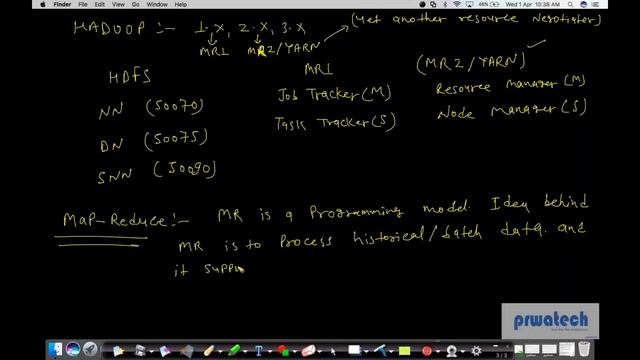 Finder File Edit View Go Window Help
46% Wed 1 Apr 10:38 AM
HADOOP :- 1.X, 2.X, 3.X, (Yet another resource Negotiater)
MR1 MR2/YARN
HDFS MR1 (MR2/YARN)
NN (50070) Job Tracker (M) Resource Manager (M)
DN (50075) Task Tracker (S) Node Manager (S)
SNN (50090)
Map-Reduce :- MR is a Programming model. Idea behind
MR is to Process historical/batch data. and
it suppo
prwatech
3 / 3